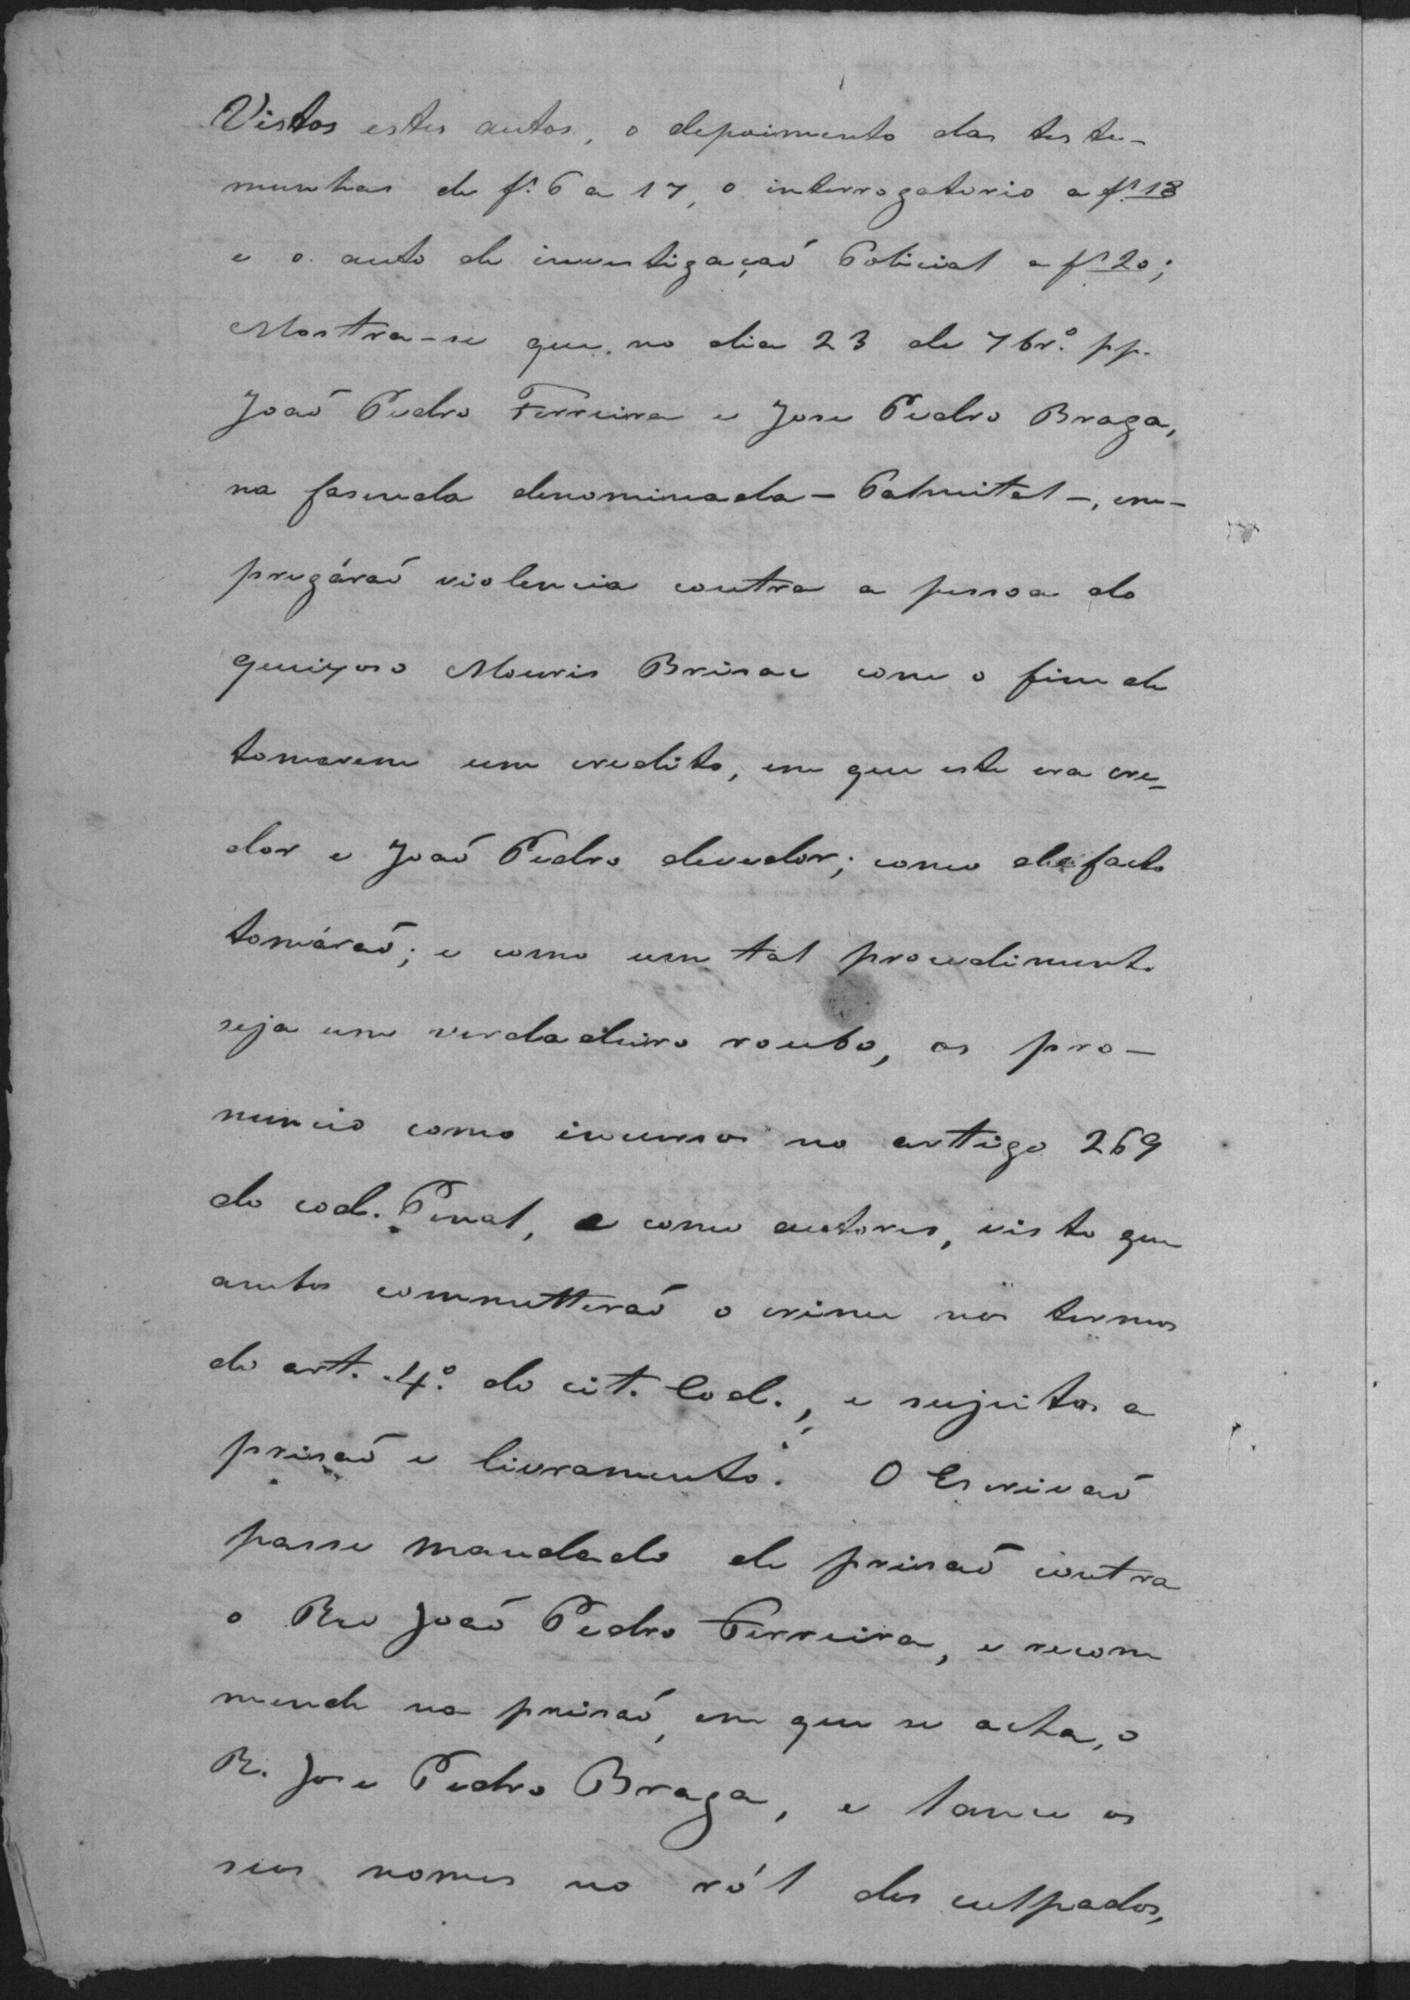 Vistos estes autos, o depoimento das teste-
munhas de f.ˢ 6 a 17, o interrogatorio a f.ˢ 18
e o auto de investigaçaõ Policial a f.ˢ 20;
Mostra-se que no dia 23 de 7br.º pp.
Joaõ Pedro Ferreira e Jose Pedro Braga,
na fasenda denominada - Palmital -, em-
pregáraõ violencia contra a pessoa do
queixoso Mouris Brisac com o fim de
tomarem um credito, em que este era cre-
dor e Joaõ Pedro devedor; como de facto
tomáraõ; e como um tal procedimento
seja um verdadeiro roubo, os pro-
nuncio como incursos no artigo 269
do cod. Penal, e como autores, visto que
ambos commetteraõ o crime nos termos
do art. 4.º do cit. Cod., e sujeitos a
prisaõ e livramento. O Escrivaõ
passe mandado de prisaõ contra
o Reo Joaõ Pedro Ferreira, e recom
mende na prisaõ, em que se acha, o
R. Jose Pedro Braga, e lance os
seus nomes no ról dos culpados,